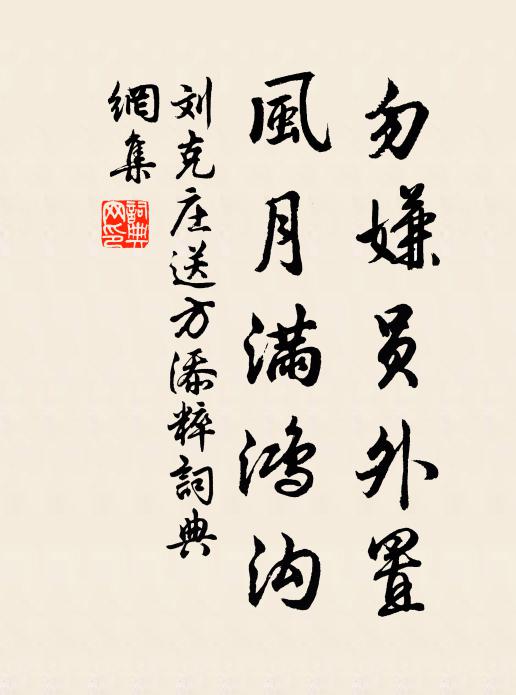 勿嫌员外置
風月满鸿沟
刘克庄送方添粹詞典
網集
詞典
网印